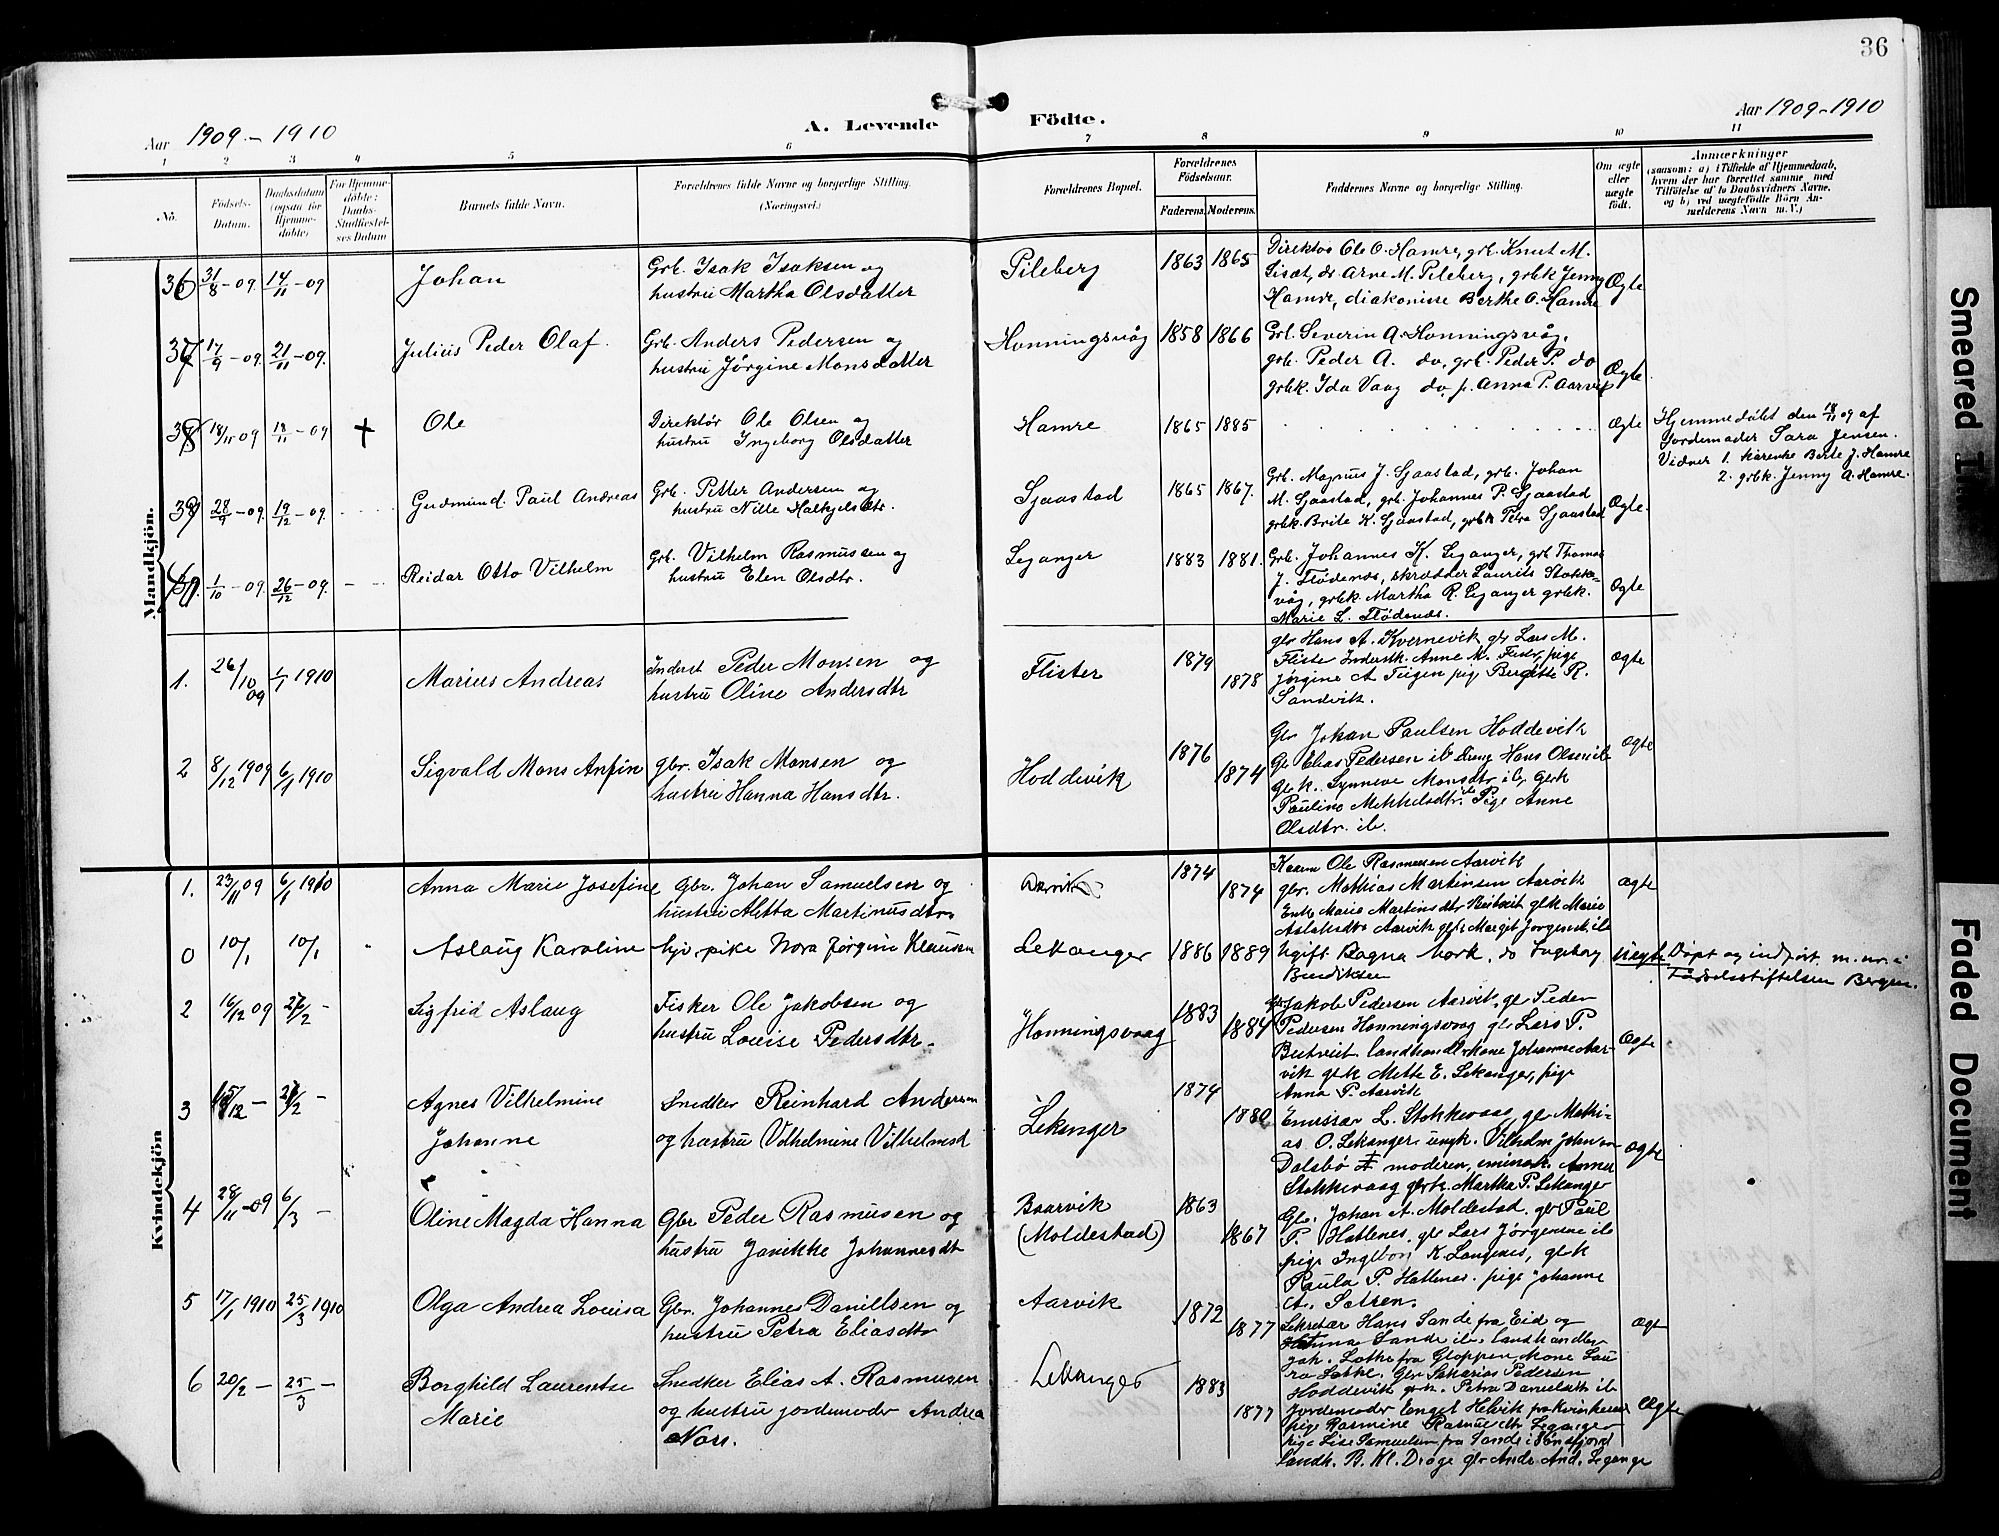 36
Aar 1909 – 1910
A. Levende Födte.
Aar 1909 – 1910
1 2 3 4 5 6 7 8 9 10 11
No.
Födsels-Datum.
Daabsdatum (ogsaa for Hjemme-döbte)
For Hjemme-döbte: Daabs-Stadfæstel-ses Datum
Barnets fulde Navn.
Forældrenes fulde Navne og borgerlige Stilling. (Næringsvei.)
Forældrenes Bopæl.
Forældrenes Födselsaar.
Faderens. Moderens.
Faddernes Navne og borgerlige Stilling.
Om ægte eller uægte födt.
Anmærkninger
(saasom: a) i Tilfælde af Hjemmedaab,
hvem der har forrettet samme med
Tilföielse af to Daabsvidners Navne,
og b) ved uægtefödte Börn An-
melderens Navn m.V.)
Mandkjön.
36 31/8 - 09. 14/11 - 09 Johan
Grb. Isak Isaksen og
hustru Martha Olsdatter
Pileberg 1863 1865
Direktör Ole O. Hamre, grb. Knut M.
Liset, do Arne M. Pileberg, grbk Jenny
Hamre, diakonisse Berthe O. Hamre
Ægte
37 17/9 - 09. 21/11 - 09. Julius Peder Olaf.
Grb. Anders Pedersen og
hustru Jørgine Monsdatter
Honningsvåg 1858 1866
Grb. Severin A. Honningsvåg,
grb. Peder A. do, grb. Peder P. do
grbk. Ida Vaag do, p. Anna P. Aarvik
Ægte
38 18/11 09 18/11 - 09 + Ole
Direktør Ole Olsen og
hustru Ingeborg Olsdatter
Hamre 1865 1885
Ægte
Hjemmedøbt den 18/11 09 af
Jordemoder Sara Jensen.
Vidner 1. Berte J. Hamre
2. grbk. Jenny A. Hamre.
39 28/9 - 09. 19/12 - 09. Gudmund Paul Andreas
Grb. Petter Andersen og
hustru Nille
Sjaastad 1865 1867.
Grb. Magnus J. Sjaastad, grb. Johan
M. Sjaastad, grb. Johannes P. Sjaastad
grbk. Brite K. Sjaastad, grbk Petra Sjaastad
Ægte.
40. 1/10 - 09. 26/12 - 09. Reidar Otto Vilhelm
Grb. Vilhelm Rasmussen og
hustru Elen Olsdtr.
Leganger 1883 1881.
Grb. Johannes K. Leganger, grb Thomas
J. Flødenes, skrædder Laurits Stokke-
våg, grbk. Martha R. Leganger grbk.
Marie L. Flødenes.
Ægte
1. 26/10 09 1/1 1910 Marius Andreas
Inderst Peder Monsen og
hustru Oline Andersdtr
Flister 1879 1878
gbr Hans A. Kvernevik gb Lars M.
Fliste Inderstk. Anne M. Flister, pige
Jørgine A Tiigen pig Bergitte R.
Sandvik.
Ægte
2 8/12 1909 6/1 1910 Sigvald Mons Anfin
gbr. Isak Monsen og
hustru Hanna Hansdtr.
Hoddevik 1876 1874
Gbr Johan Paulsen Hoddevik
Gb Elias Pedersen ib Ung Hans Olsen ib
Gbr k. Synneve Monsdtr ib, Gbrk
Pauline Mekkelsdtr. ib Pige Anne
Olsdtr. ib.
Ægte
Kvindekjön
1. 23/11 09 6/1 1910 Anna Marie Josefine
Gbr. Johan Samuelsen og
hustru Aletta Martinusdtr
Aarvik 1874 1874
Ole Rasmussen Aarvik
gbr. Mathias Martinsen Aarvik
Enke Marie Martinsdtr gbk Marie
Aslaksdtr Aarvik gbk Margit ib
ægte
0 10/1 10/1 Aslaug Karoline
hjv. pike Nora Jørgine Klausen
Lekanger 1886 1889
Ugift Ragna Mork, do Ingeborg
Bendiksen
Uegte
Døpt og indført m. nr. i
Fødselsstiftelsen Bergen.
2 16/12 09 27/2 – Sigfrid Aslaug
Fisker Ole Jakobsen og
hustru Louise Pedersdtr.
Honningsvaag 1883 1884
gb. Jakob Pedersen Aarvik, gb Peder
Pedersen Honningsvaag gbr Lars P.
landhandl kone Johanne Aar-
vik gbk Mette E. Lekanger, pige
Anna P. Aarvik
Ægte
3 15/12 – 27/2 – Agnes Vilhelmine
Johanne
Snedker Reinhard Andersen
og hustru Vilhelmine Vilhelmsd
Lekanger 1874 1880
Emissær L. Stokkevaag, gbr Mathi-
as O. Lekanger, ungk. Vilhelm Johnsen
Dalsbö moderen, Anna
Stokkevaag gbrk. Martha P. Lekanger
Ægte
4 28/11 - 09 6/3 – Oline Magda Hanna
Gbr Peder Rasmusen og
hustru Janikke Johannesdt
Baarvik
(Moldestad) 1863 1867
Gbr. Johan A. Moldestad, gbr Paul
P. Hatlenes, gbr Lars Jørgensen ib
pige Ingebor K. Langenes, gbk
Paula P. Hatlenes. pige Johanne
A. Satren.
5 17/1 1910 25/3 1910 Olga Andrea Louisa
Gbr. Johannes Danillsen og
hustru Petra Eliasdtr
Aarvik 1872 1877
Sekretær Hans Sande fra Eid og
Sande ib. landhandler
Lothe fra Gloppen, kone Lau
ra Lothe. Gbr Sakarias Pedersen
Hoddevik gbk. Petra Danielsdtr ib
Ægt
6 20/2 – 25/3 – Borghild Laurentse
Marie
Snedker Elias A. Rasmusen
og hustru jordemoder Andrea
Nors.
Lekanger 1883 1877
Jordemoder Engel Helvik fra
pige Rasmine Leganger
pige Lise Samuelsen fra Sande i
landh. B. Kl. Dröge gbr Ande And. Legange
Ægte
Smeared
Faded Document